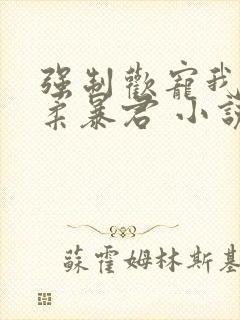 强制歡寵我
柔暴君 小說
蘇霍姆林斯基